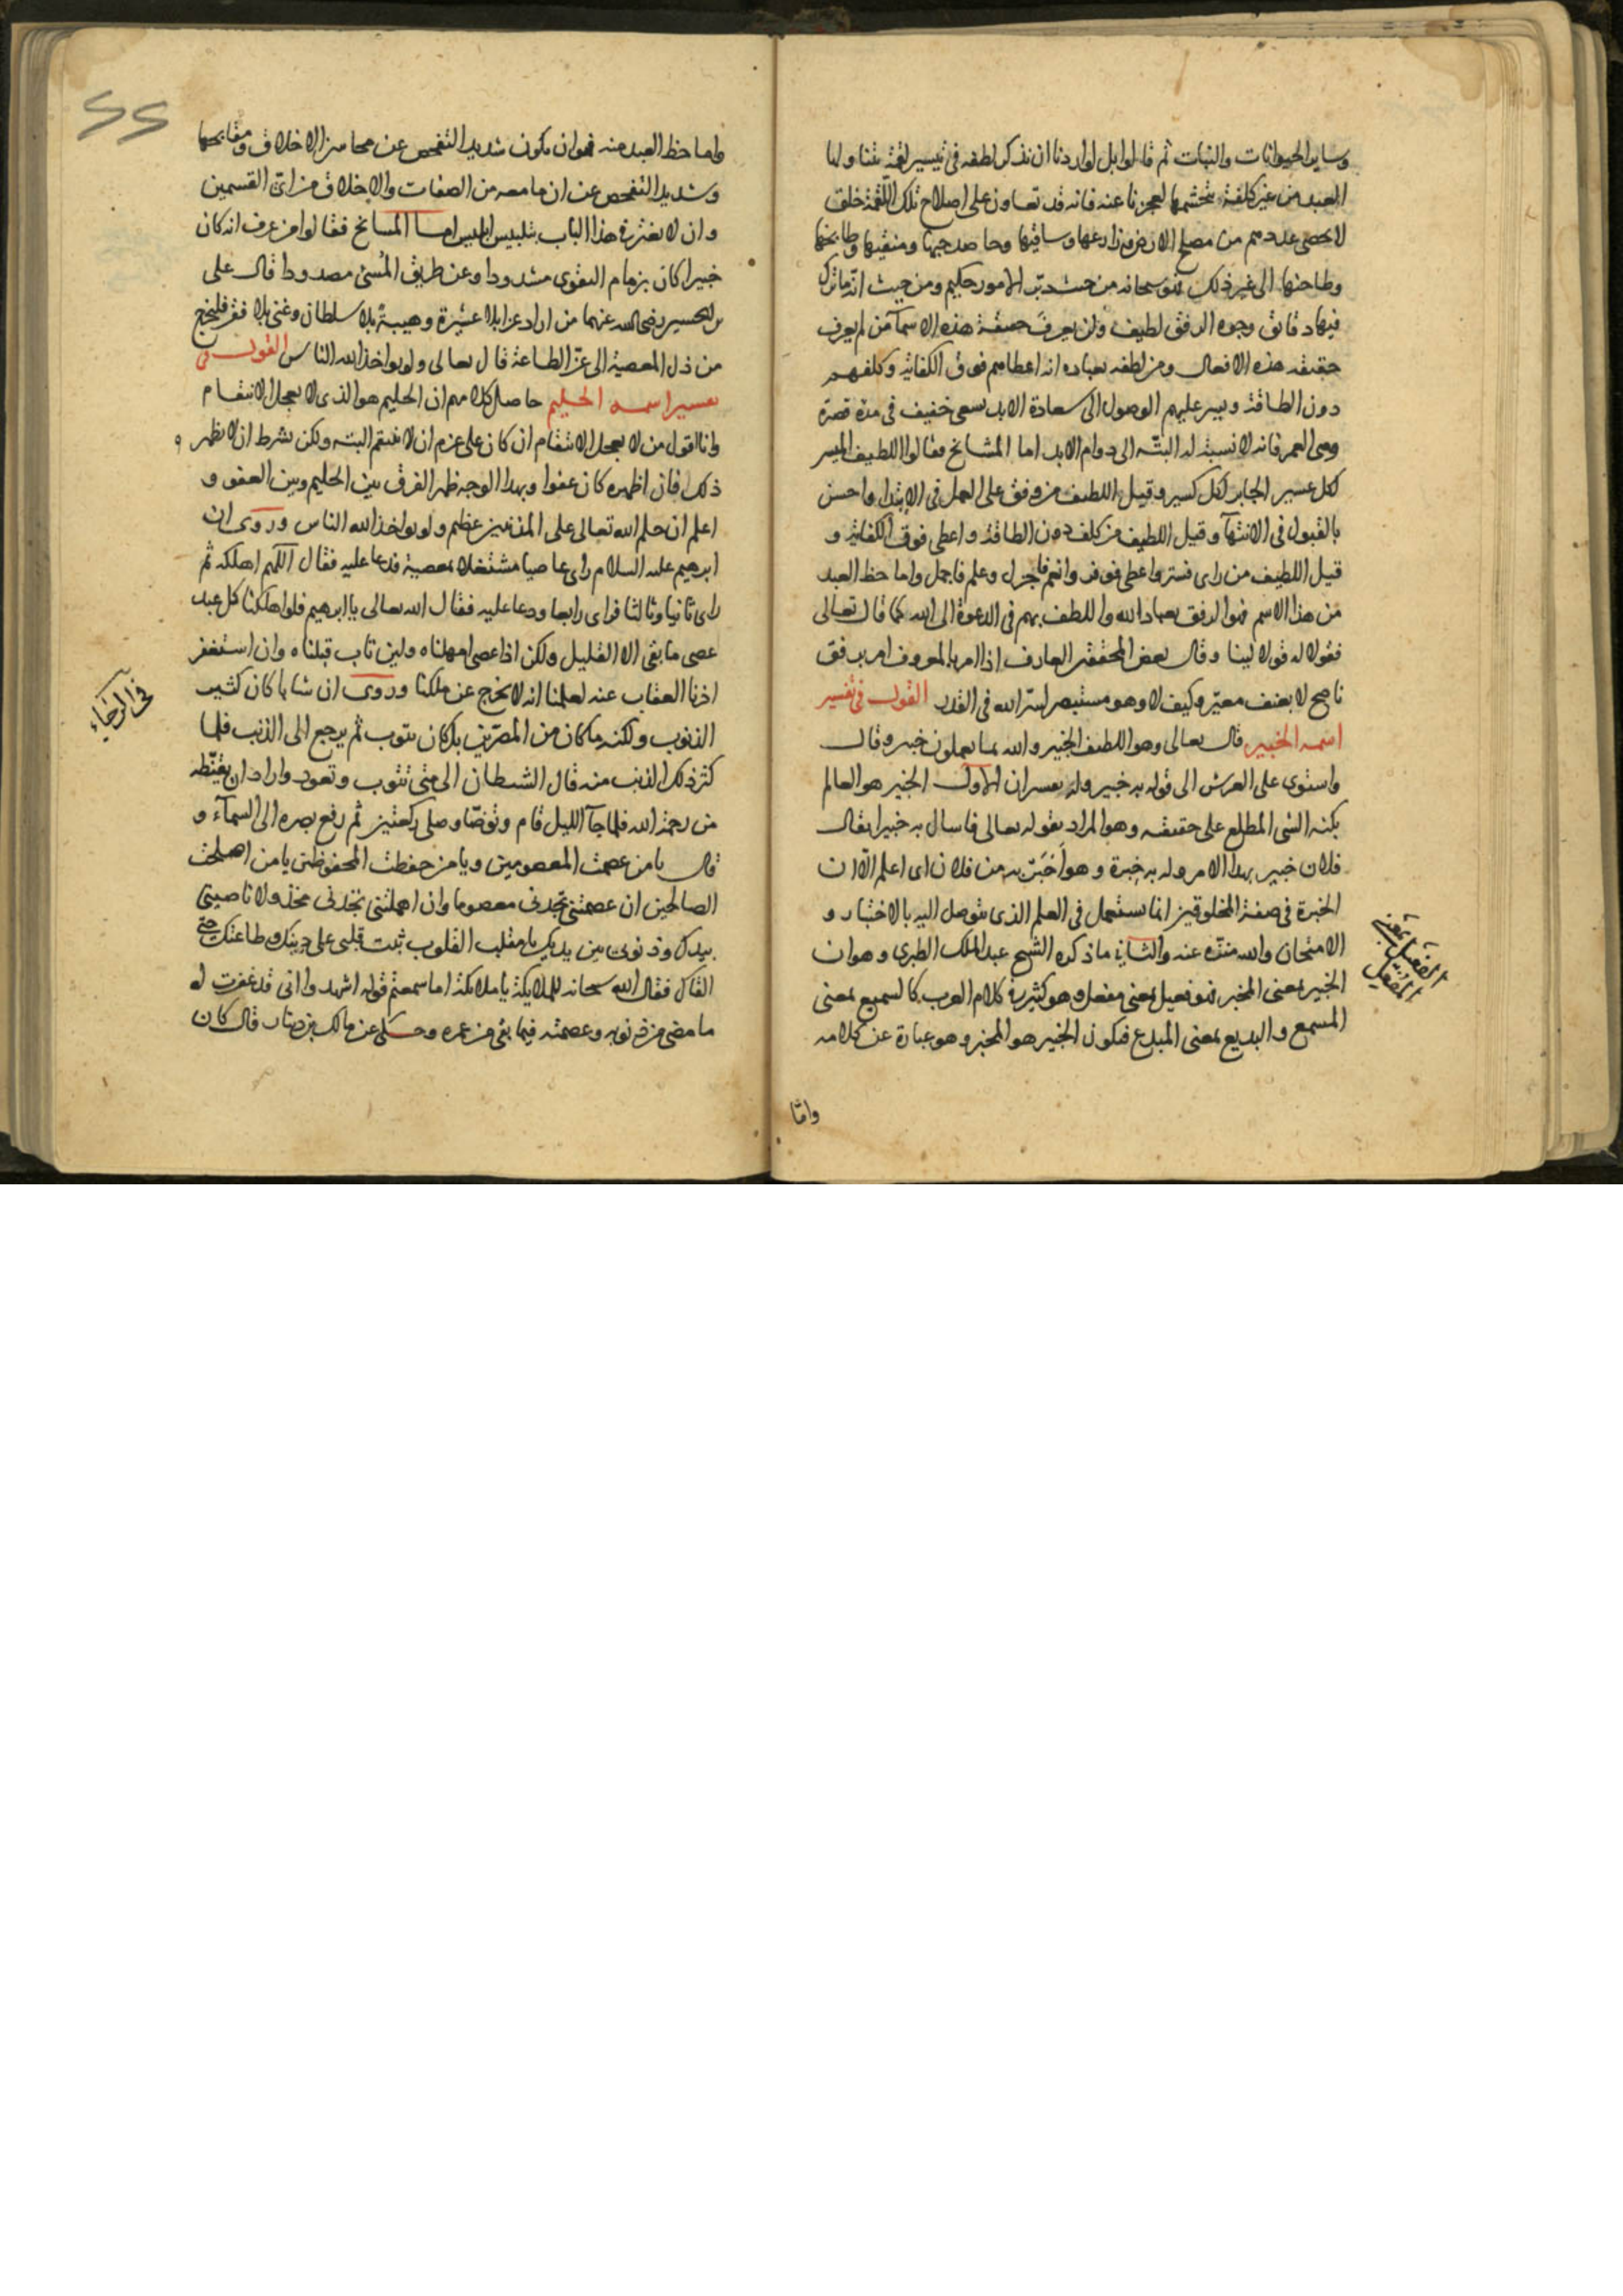 وساير الحيوانات والنبات ثم قالوا بل لو اردنا ان نذكر لطفه في تيسير لقمة يتناولها
العبد من غير كلفة يتجشمها لعجزنا عنه فانه قد تعاون على اصلاح تلك اللقمة خلق
لا يحصى عددهم من مصلح الارض وزارعها وساقيها وحاصدها ومنقيها وطابخها
وطاحنها الى غير ذلك فهو سبحانه من حيث دبر الامور حكيم ومن حيث انه ما ترك
فيها دقائق وجوه الرفق لطيف ولن يعرف حقيقة هذه الاسمآ من لم يعرف
حقيقة هذه الافعال ومن لطفه بعباده انه اعطاهم فوق الكفاية وكلفهم
دون الطاقة ويسر عليهم الوصول الى سعادة الابد بسعى خفيف في مدة قصيرة
وهي العمر فانه لا نسبة له البتّه الى دوام الابد اما المشايخ فقالوا اللطيف الميسر
لكل عسير الجابر لكل كسير وقيل اللطيف من وفق على العمل في الابتدا واحسن
بالقبول في الانتهآ وقيل اللطيف من كلف دون الطاقة واعطى فوق الكفاية و
قيل اللطيف من راى فستر واعطى فوفر وانعم فاجزل وعلم فاجمل واما حظ العبد
من هذا الاسم فهو الرفق بعباد الله واللطف بهم في الدعوة الى الله كما قال تعالى
فقولا له قولا لينا وقال بعض المحققين العارف اذا امر بالمعروف امر برفق
ناصح لا بعنف معيّر وكيف لا وهو مستبصر لسرّ الله في القدر القول في تفسير
اسمه الخبير قال تعالى وهو اللطيف الخبير والله بما يعملون خبير وقال
واستوى على العرش الى قوله به خبيرا وله تفسيران الاول الخبير هو العالم
بكنه الشي المطلع على حقيقته وهو المراد بقوله تعالى فاسال به خبيرا يقال
فلان خبير بهذا الامر وله به خبرة وهو اخبر به من فلان اى اعلم الّا ان
الخبرة في صفة المخلوقين انما يستعمل في العلم الذى يتوصل اليه بالاختبار و
الامتحان والله منزه عنه والثاني ما ذكره الشيخ عبد الملك الطبري وهو ان
الخبير بمعنى المخبر فهو فعيل بمعنى مفعل وهو كثير في كلام العرب كالسميع بمعنى
المسمع والبديع بمعنى المبدع فيكون الخبير هو المخبر وهو عبارة عن كلامه
الفعيل بمعنى
المفعل
وامّا
واما حظ العبد منه فهو ان يكون شديد التفحص عن محاسن الاخلاق ومقابحها
وشديد التفحص عن ان ما معه من الصفات والاخلاق من اى القسمين
وان لا يغتر في هذا الباب بتلبيس ابليس اما المشايخ فقالوا من عرف انه كان
خبيرا كان بزمام التقوى مشدودا وعن طريق المنى مصدودا قال على
بن الحسين رضى الله عنهما من اراد عزا بلا عشيرة وهيبة بلا سلطان وغنى بلا فقر فليخرج
من ذل المعصية الى عزّ الطاعة قال تعالى ولو يواخذ الله الناس القول في
تفسير اسمه الحليم حاصل كلامهم ان الحليم هو الذى لا يعجل الانتقام
وانا اقول من لا يعجل الانتقام ان كان على عزم ان لا ينتقم البته ولكن بشرط ان لا يظهر
ذلك فان اظهره كان عفوا وبهذا الوجه ظهر الفرق بين الحليم وبين العفو و
اعلم ان حلم الله تعالى على المذنبين عظيم ولو يواخذ الله الناس وروى ان
ابرهيم عليه السلام راى عاصيا مشتغلا بمعصية فدعا عليه فقال اللهم اهلكه ثم
راى ثانيا وثالثا فراى رابعا ودعا عليه فقال الله تعالى يا ابرهيم فلو اهلكنا كل عبد
عصى ما بقى الا القليل ولكن اذا عصى امهلناه ولين تاب قبلناه وان استغفر
اخرنا العقاب عنه لعلمنا انه لا يخرج عن ملكنا وروى ان شابا كان كثير
الذنوب ولكنه ما كان من المصرّين بل كان يتوب ثم يرجع الى الذنب فلما
كثر ذلك الذنب منه قال الشيطان الى متى تتوب وتعود واراد ان يقنّطه
من رحمة الله فلما جآ الليل قام وتوضّا وصلى ركعتين ثم رفع بصره الى السمآء و
قال يا من عصمت المعصومين ويا من حفظت المحفوظين يا من اصلحت
الصالحين ان عصمتني تجدني معصوما وان اهملتني تجدني مخذولا ناصيتي
بيدك وذنوبى بين يديك يا مقلب القلوب ثبت قلبى على دينك وطاعتك
فقال الله سبحانه للملايكة يا ملايكتى اما سمعتم قوله اشهدوا انى قد غفرت له
ما مضى من ذنوبه وعصمته فيما بقى من عمره وحكى عن مالك بن دينار قال كان
في الرجاء